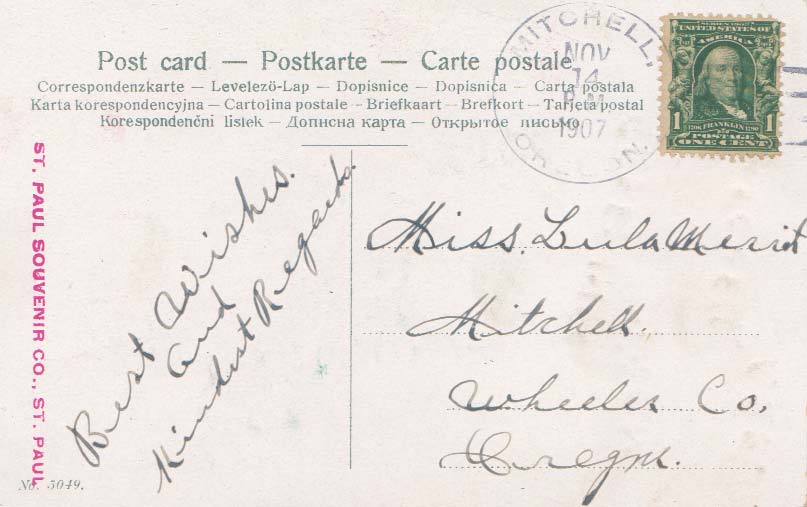 Post card — Postkarte — Carte postale
Correspondenzkarte — Levelező-Lap — Dopisnice — Dopisnica — Carta postala
Karta korespondencyjna — Cartolina postale — Briefkaart — Brefkort — Tarjeta postal
Korespondenčni listek — Дописна карта — Открытое письмо
MITCHELL,
NOV
14
P.M.
1907
OREGON.
SERIES 1902
UNITED STATES OF
AMERICA
1706 FRANKLIN 1790
POSTAGE
1 1
ONE CENT
ST. PAUL SOUVENIR CO., ST. PAUL
Best Wishes.
and
Kindest Regards.
Miss. Lula Merrit
Mitchell.
Wheeler Co.
Oregon.
No. 5049.